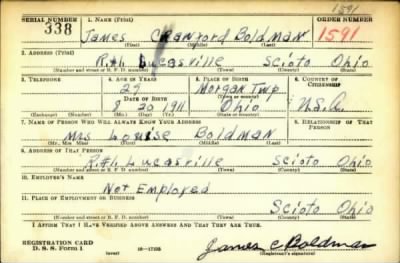 1591
SERIAL NUMBER 1. NAME (Print) ORDER NUMBER
338 James Cranford Boldman 1591
(First) (Middle) (Last)
2. ADDRESS (Print)
R.#1 Lucasville Scioto Ohio
(Number and street or R. F. D. number) (Town) (County) (State)
3. TELEPHONE 4. AGE IN YEARS 5. PLACE OF BIRTH 6. COUNTRY OF CITIZENSHIP
29 Morgan Twp
(Town or county)
DATE OF BIRTH
8 20 1911 Ohio U.S.A.
(Exchange) (Number) (Mo.) (Day) (Yr.) (State or country)
7. NAME OF PERSON WHO WILL ALWAYS KNOW YOUR ADDRESS 8. RELATIONSHIP OF THAT PERSON
Mrs Louise Boldman
(Mr., Mrs., Miss) (First) (Middle) (Last)
9. ADDRESS OF THAT PERSON
R.#1 Lucasville Scioto Ohio
(Number and street or R. F. D. number) (Town) (County) (State)
10. EMPLOYER'S NAME
Not Employed
11. PLACE OF EMPLOYMENT OR BUSINESS
Scioto Ohio
(Number and street or R. F. D. number) (Town) (County) (State)
I AFFIRM THAT I HAVE VERIFIED ABOVE ANSWERS AND THAT THEY ARE TRUE.
REGISTRATION CARD
D. S. S. Form 1 (over) James C Boldman
(Registrant's signature)